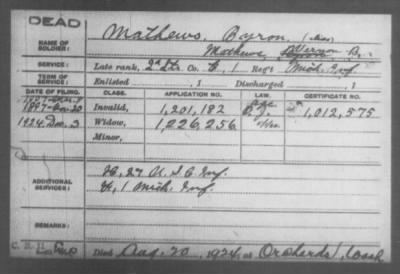 DEAD
NAME OF SOLDIER:
Mathews, Byron, (alias)
Mathews, Vernon B.
SERVICE:
Late rank, 2d Lt. Co. E, 1 Reg't Mich. Inf.
TERM OF SERVICE:
Enlisted , 1 Discharged , 1
DATE OF FILING. CLASS. APPLICATION NO. LAW. CERTIFICATE NO.
1897 Invalid, 1,201,182 1,012,575
1924 Dec. 3 Widow, 1,226,256
Minor,
ADDITIONAL SERVICES:
H, 27 U.S.C. Inf.
1 Mich. Inf.
REMARKS:
C. & H.
Died Aug. 20, 1924, at Orchards, Wash